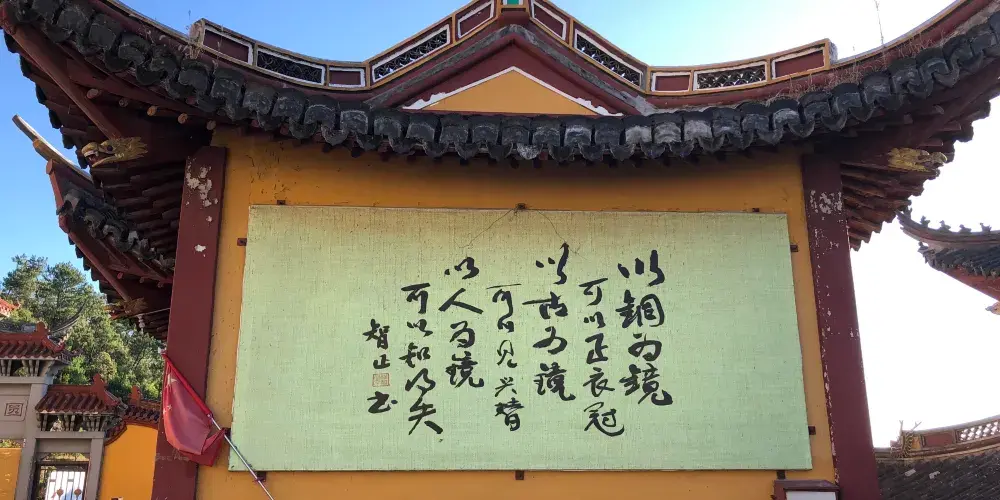 以銅为鏡
可以正衣冠
以古为鏡
可以见兴替
以人为鏡
可以知得失
智正书